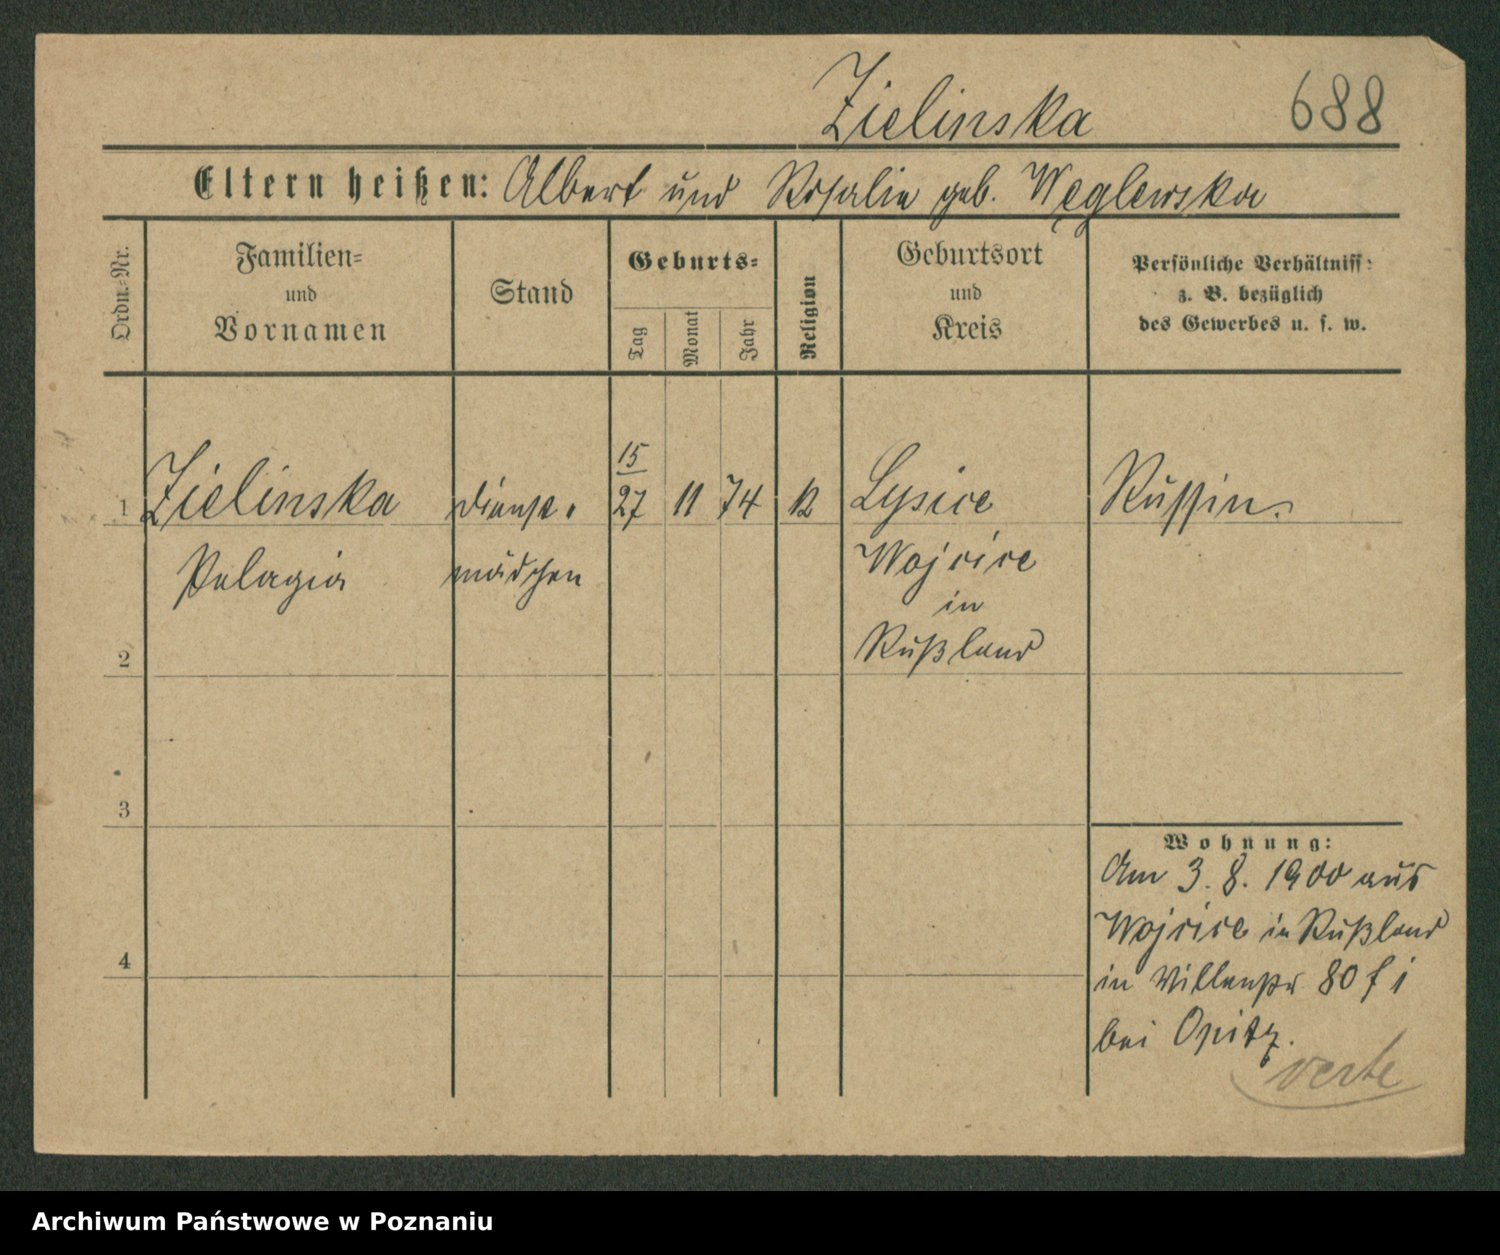 Zielinska 688
Eltern heißen: Albert und Rosalie geb. Węglewska
Ordn.-Nr.
Familien-
und
Vornamen
Stand
Geburts-
Tag
Monat
Jahr
Religion
Geburtsort
und
Kreis
Persönliche Verhältniss:
z. B. bezüglich
des Gewerbes u. s. w.
15
1 Zielinska Dienst- 27 11 74 k Lysice Russin.
Pelagia mädchen Wojcice
in
2 Rußland
3
4
Wohnung:
Am 3. 8. 1900 aus
Wojcice in Rußland
in 80
bei Opitz.
verte
Archiwum Państwowe w Poznaniu